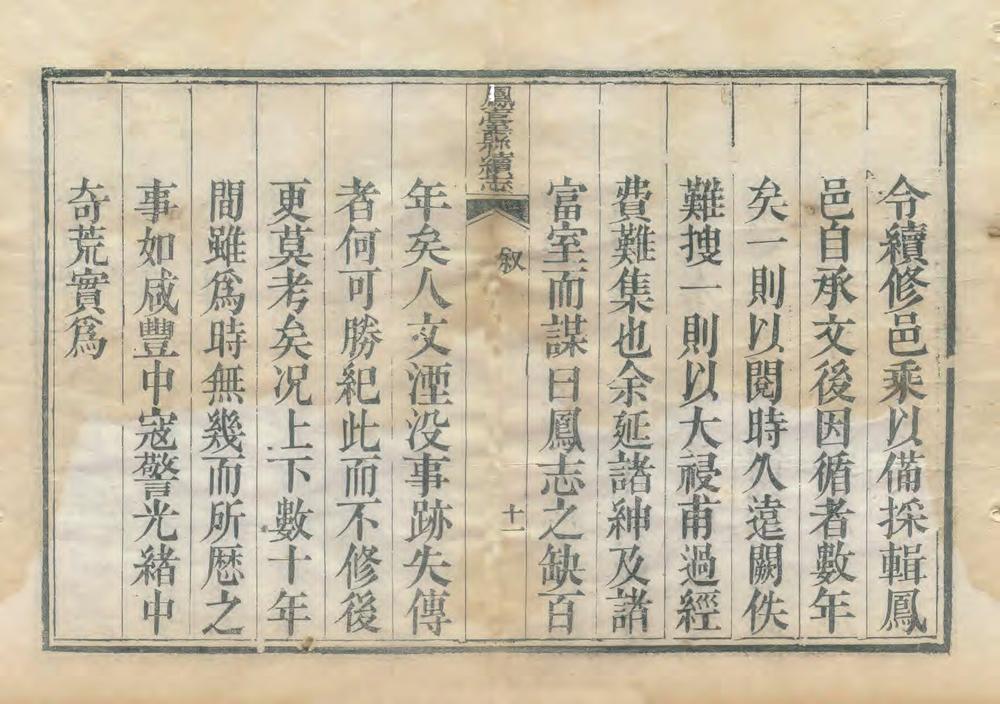 令續修邑乘以備採輯鳳
邑自承文後因循者數年
矣一則以閱時久遠闕佚
難搜一則以大祲甫過經
費難集也余延諸紳及諸
富室而謀曰鳳志之缺百
鳳臺縣續志
叙
十一
年矣人文湮没事跡失傳
者何可勝紀此而不修後
更莫考矣况上下數十年
間雖爲時無幾而所歷之
事如咸豐中寇警光緒中
奇荒實爲